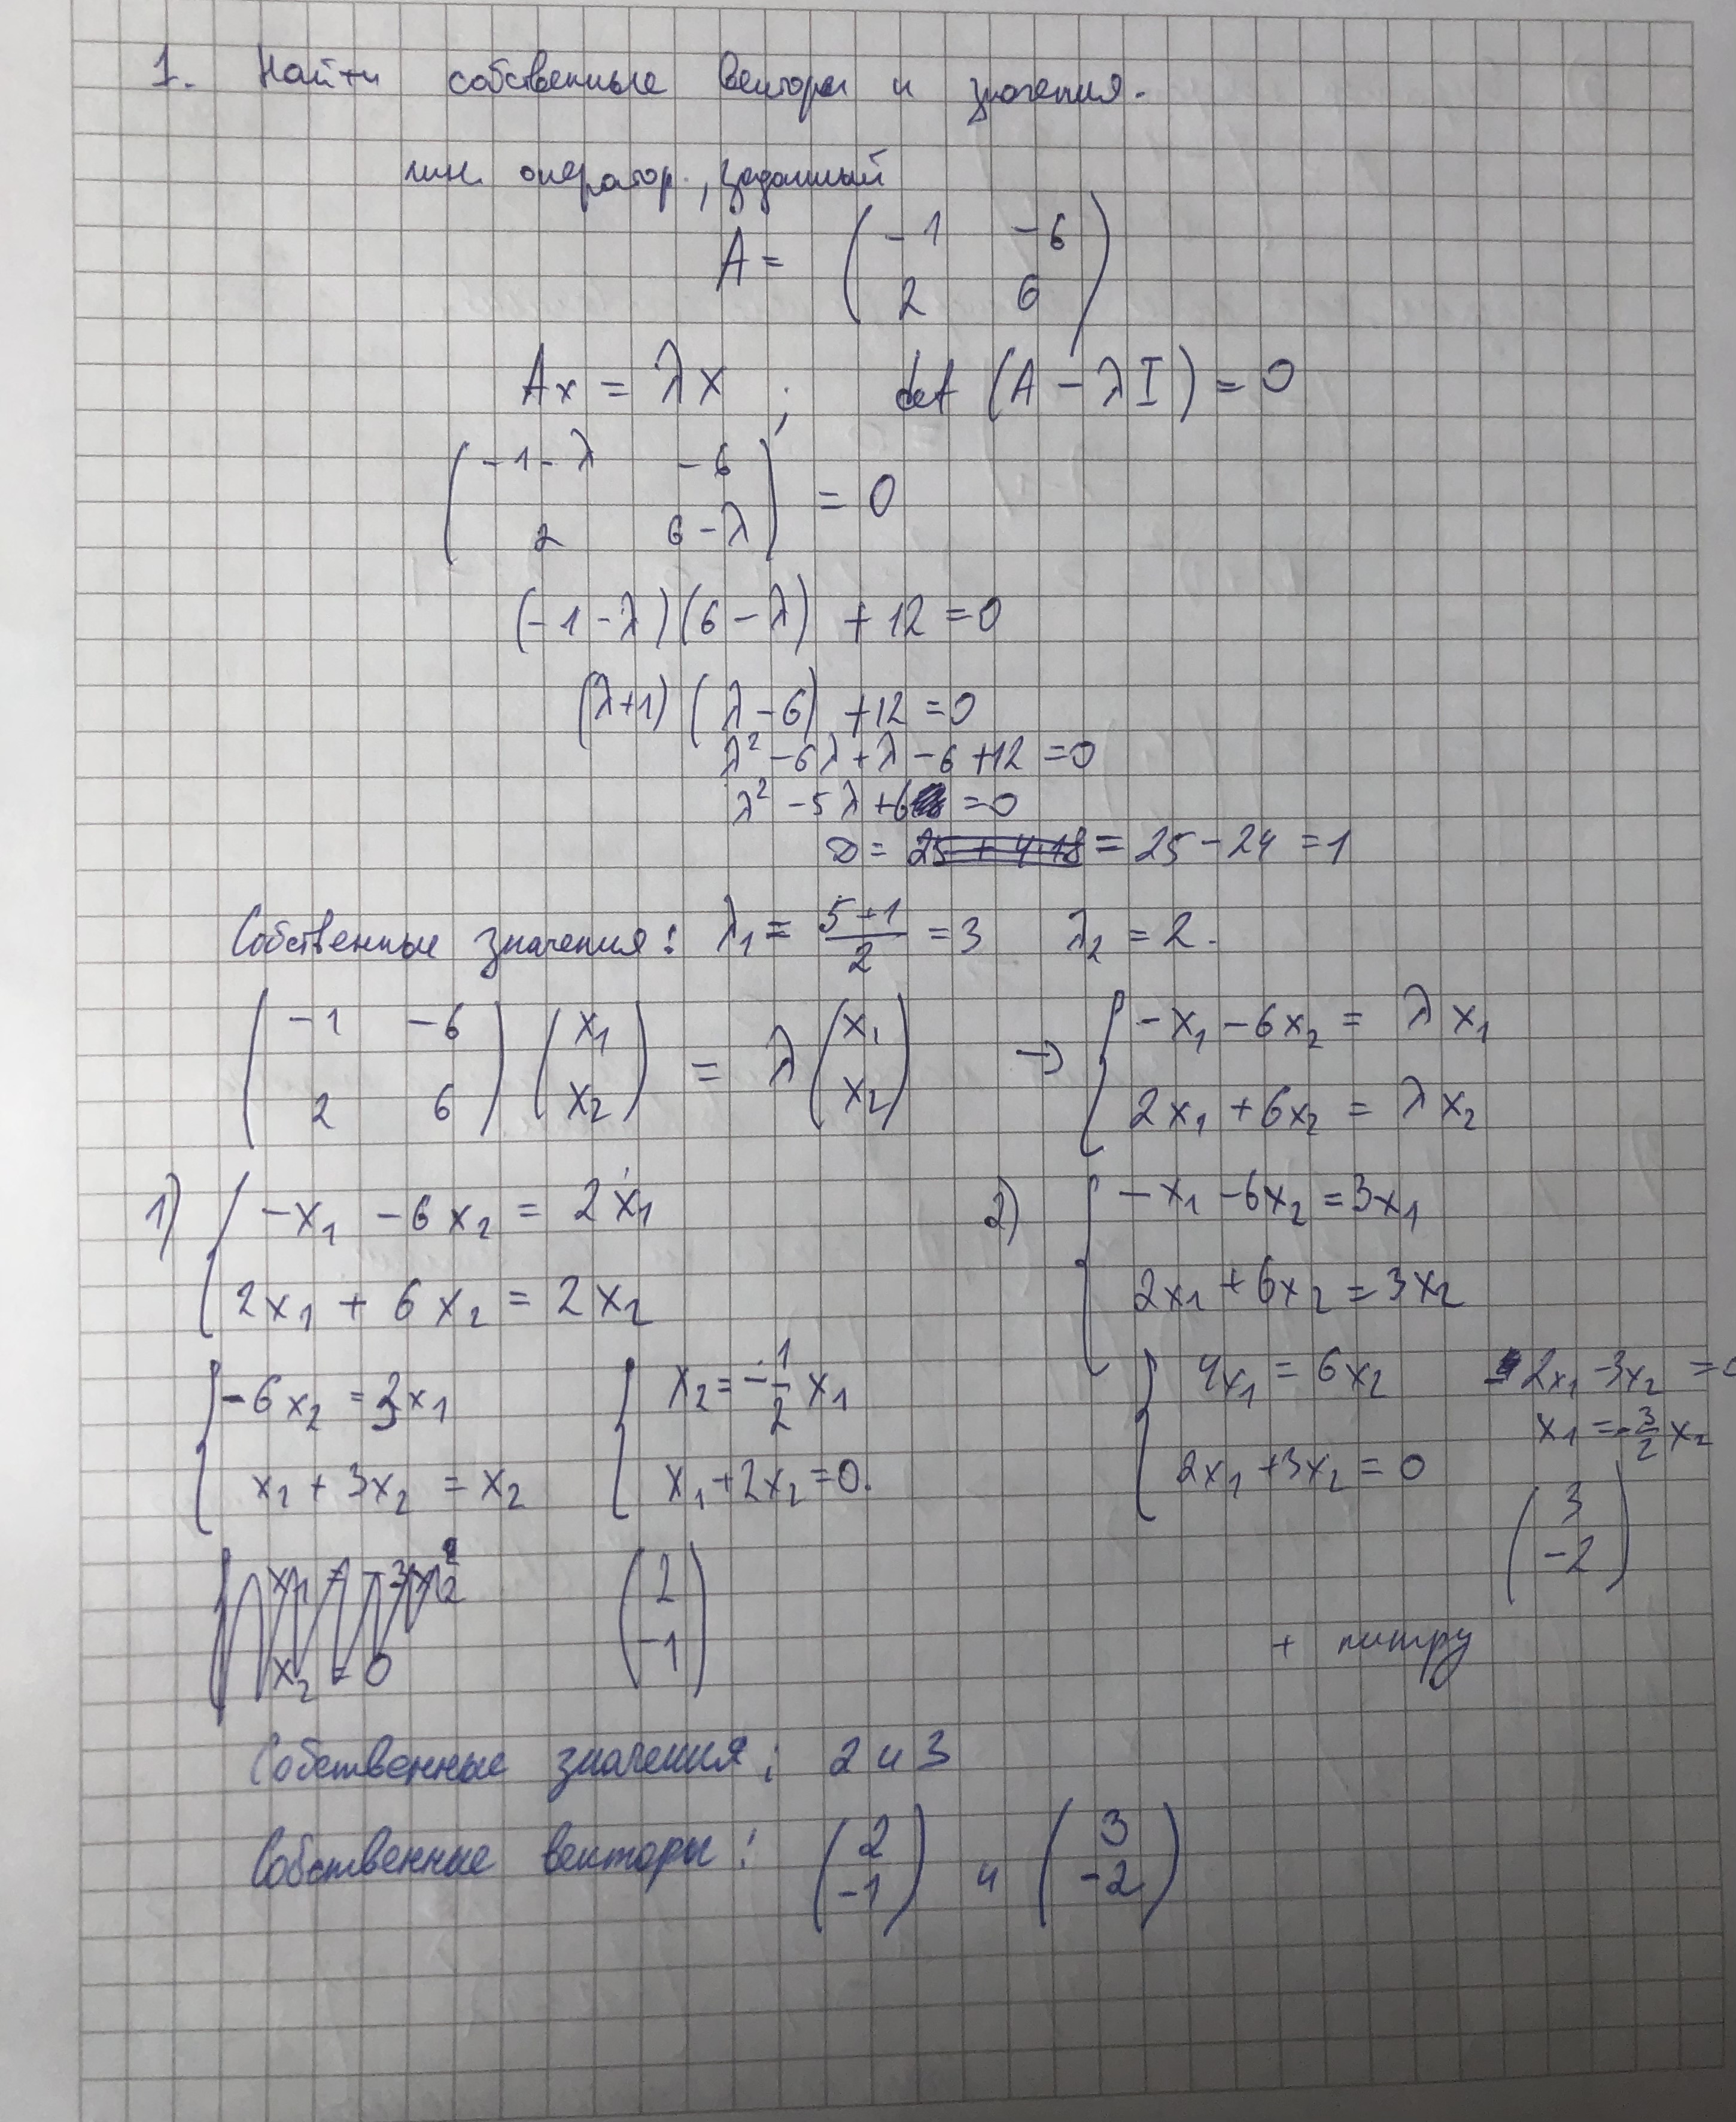 1. Найти собственные векторы и значения.
лин. оператор., заданный
A = ( -1 -6
2 6 )
Ax = λx ; det (A - λI) = 0
( -1-λ -6
2 6-λ ) = 0
(-1-λ)(6-λ) +12 = 0
(λ+1) (λ-6) +12 = 0
λ² -6λ+λ -6 +12 = 0
λ² -5λ +6 = 0
D = 25 + 4·18 = 25 - 24 = 1
Собственные значения: λ₁ = (5+1)/2 = 3 λ₂ = 2.
( -1 -6 ) ( x₁ ) = λ ( x₁ ) → { -x₁ - 6x₂ = λx₁
( 2 6 ) ( x₂ ) ( x₂ ) 2x₁ + 6x₂ = λx₂
1) { -x₁ - 6x₂ = 2x₁
2x₁ + 6x₂ = 2x₂
2) { -x₁ -6x₂ = 3x₁
2x₁ +6x₂ = 3x₂
{ -6x₂ = 3x₁ { x₂ = -1/2 x₁
x₂ + 3x₂ = x₂ x₁ +2x₂ = 0.
( 2
-1 )
{ 4x₁ = 6x₂ 2x₁ -3x₂ =
2x₁ +3x₂ = 0 x₁ = -3/2 x₂
( 3
-2 )
Собственные значения: 2 и 3
Собственные векторы: ( 2 ) и ( 3 )
( -1 ) ( -2 )